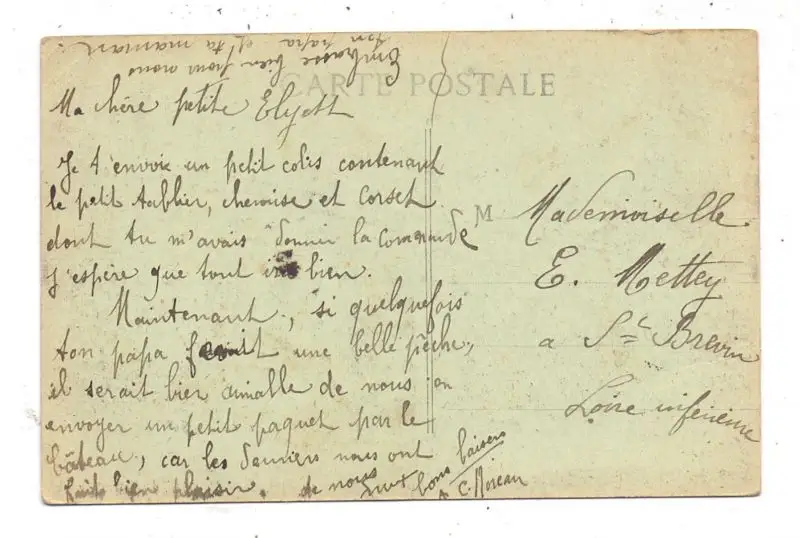 Embrasse bien pour nous
ton papa et ta maman.
CARTE POSTALE
Ma chère petite Elyett
Je t'envoie un petit colis contenant
le petit tablier, chemise et corset
dont tu m'avais donner la commande
j'espère que tout ira bien.
Maintenant, si quelquefois
ton papa ferait une belle pêche,
il serait bien aimable de nous en
envoyer un petit paquet par le
bâteau, car les derniers nous ont
fait bien plaisir. de nous
bons baisers
C. Moreau
M Mademoiselle
E. Mettey
a St Brevin
Loire inférieure